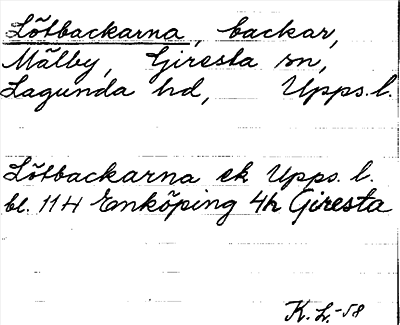 Lötbackarna, backar,
Mälby, Giresta sn,
Lagunda hd, Upps. l.
Lötbackarna ek Upps. l.
bl. 11 H Enköping 4h Giresta
K. L. -58